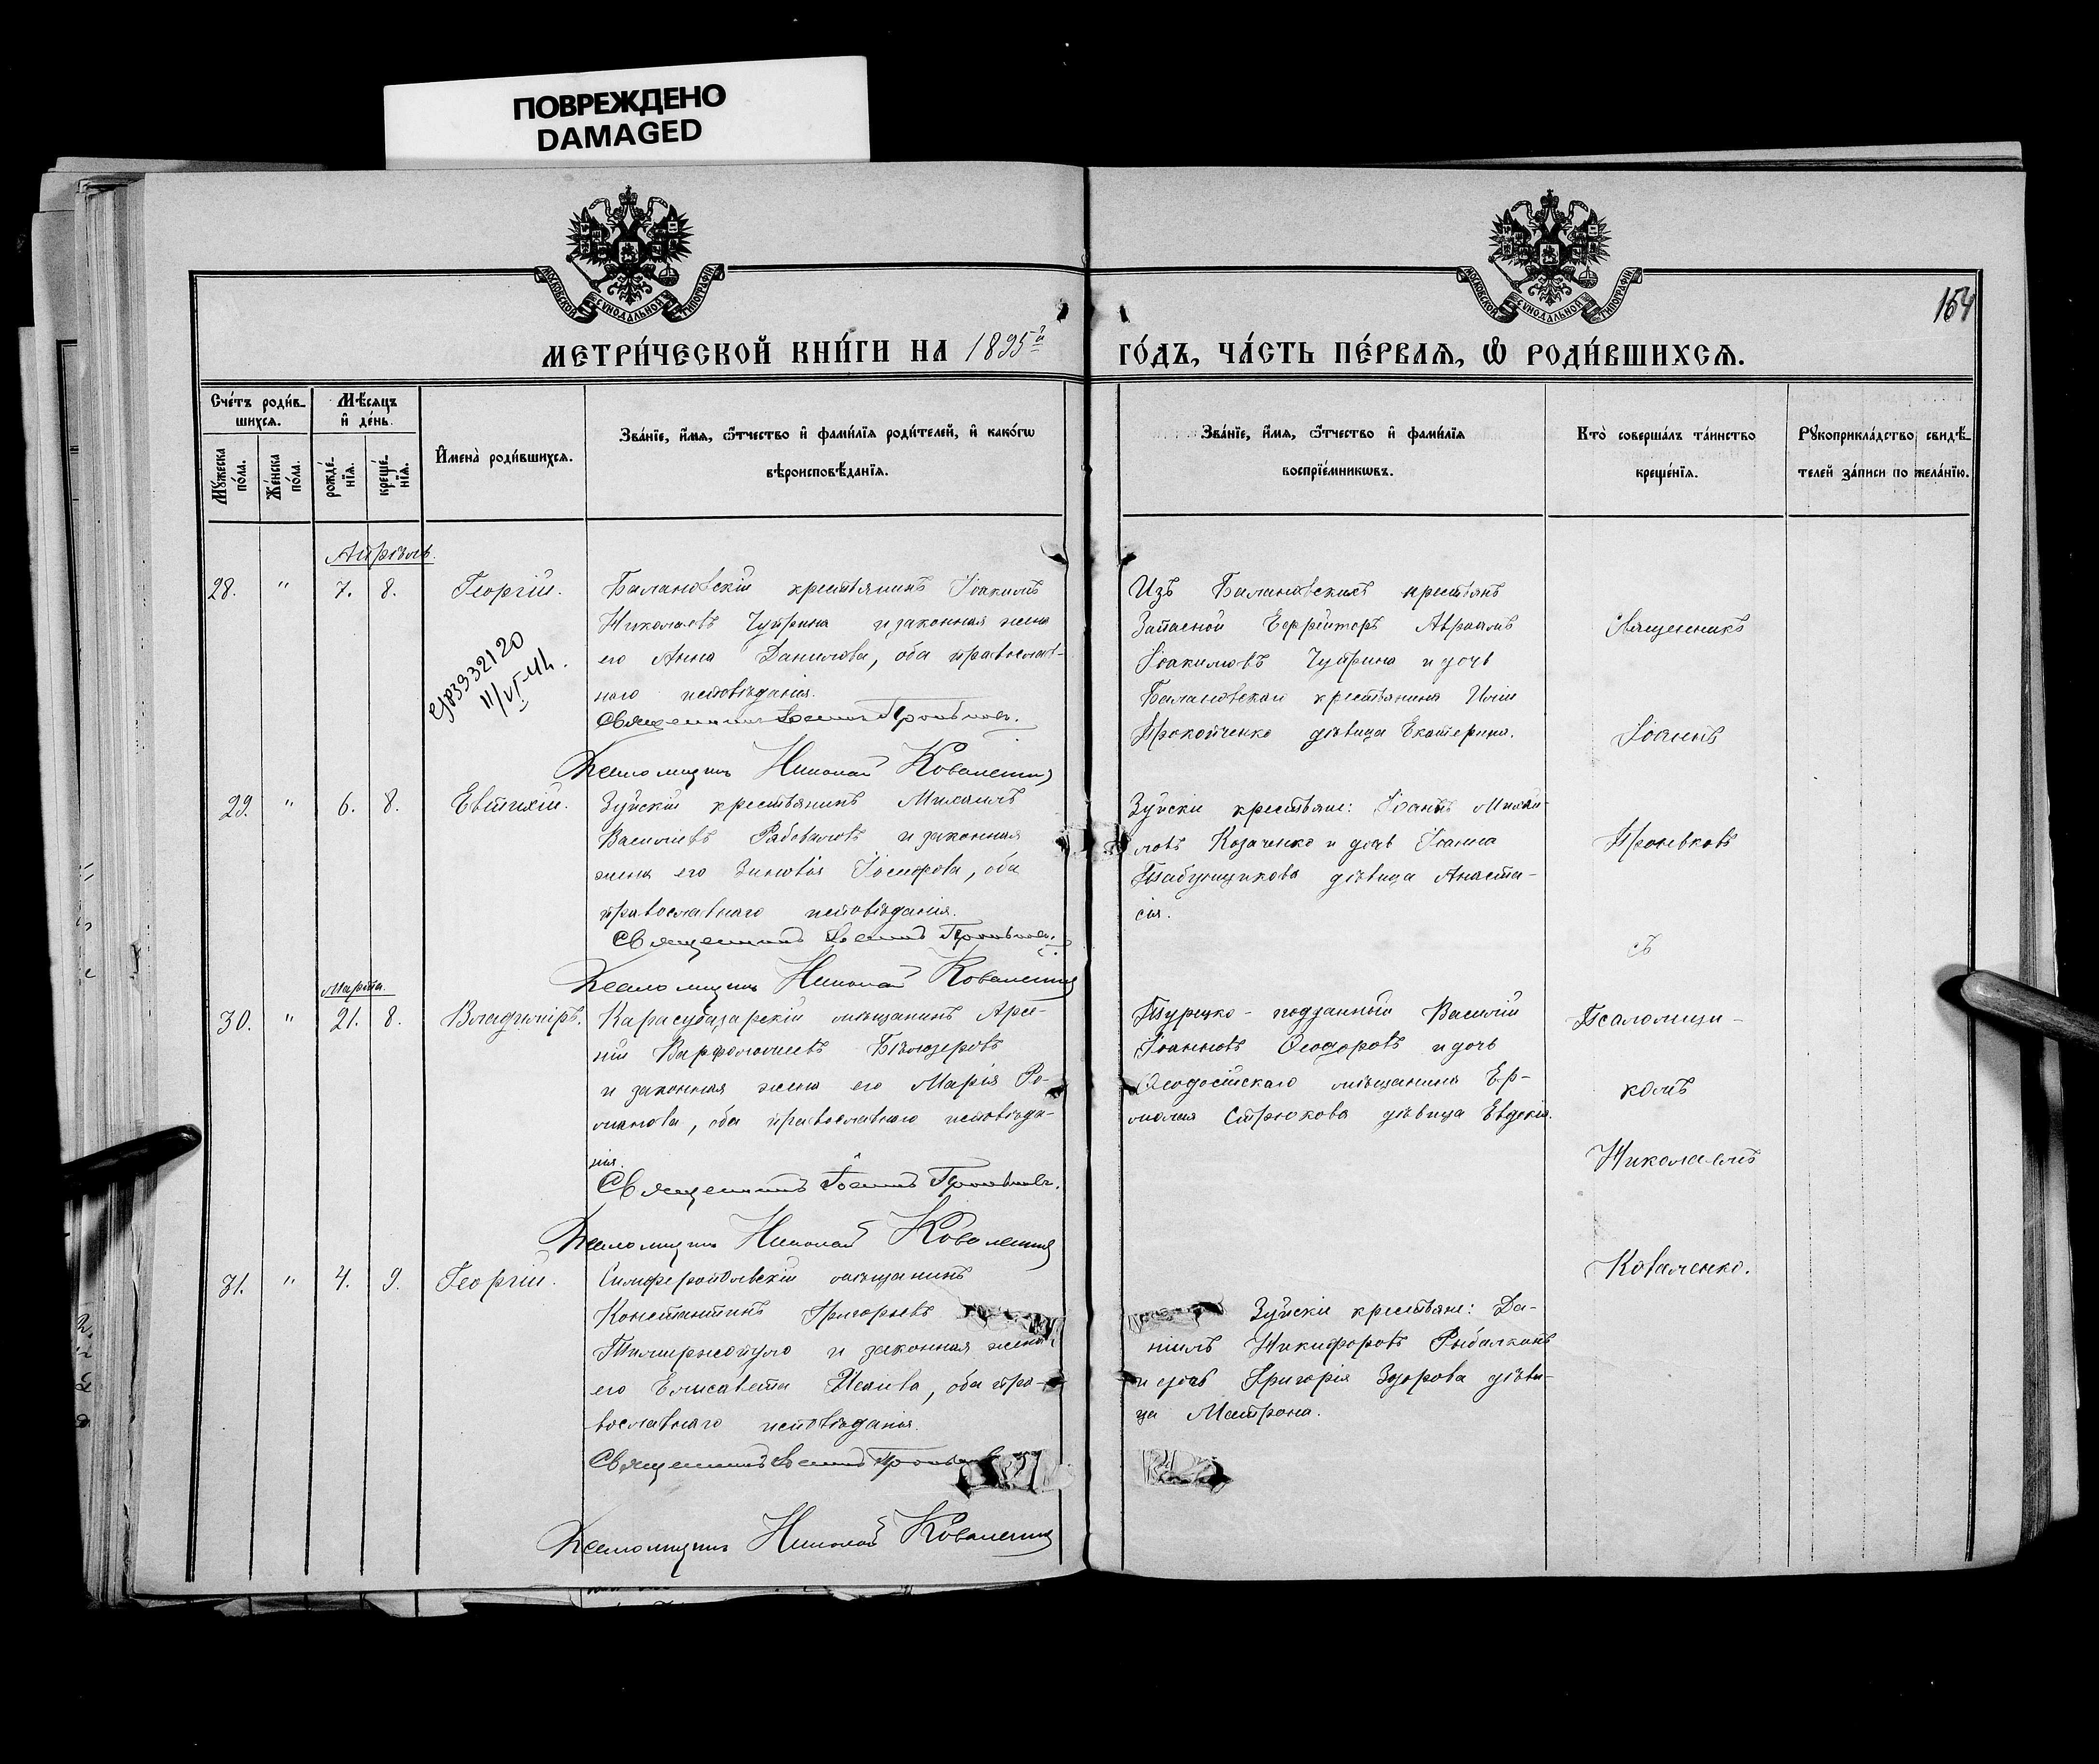 ПОВРЕЖДЕНО
DAMAGED
МОСКОВСКОЙ СѴНОДАЛЬНОЙ ТИПОГРАФІИ
МОСКОВСКОЙ СѴНОДАЛЬНОЙ ТИПОГРАФІИ
154
МЕТРИ́ЧЕСКОЙ КНИ́ГИ НА 1895й
ГО́ДЪ, ЧА́СТЬ ПЕ́РВАѦ, Ѡ҆ РОДИ́ВШИХСѦ.
Сче́тъ роди́в-
шихсѧ.
Мꙋ́жеска по́ла.
Же́нска по́ла.
Мѣ́сѧцъ
и҆ де́нь.
рожде́-
нїѧ.
креще́-
нїѧ.
И҆мена̀ роди́вшихсѧ.
Зва́нїе, и҆́мѧ, ѻ҆́тчество и҆ фами́лїѧ роди́телей, и҆ како́гѡ
вѣроисповѣ́данїѧ.
Зва́нїе, и҆́мѧ, ѻ҆́тчество и҆ фами́лїѧ
воспрїе́мникѡвъ.
Кто̀ соверша́лъ та́инство
креще́нїѧ.
Рꙋкоприкла́дство свидѣ́-
телей за́писи по жела́нїю.
Апрѣль.
28. " 7. 8. Георгій.
Балановскій крестьянинъ Іоакимъ
Николаевъ Чуприна и законная жена
его Анна Данилова, оба православ-
наго исповѣданія.
Священникъ Іоаннъ
Псаломщикъ Николай Коваленко
3932120
11/VI-41 г.
Изъ Балановскихъ крестьянъ
Запасной Ефрейторъ Авраамъ
Іоакимовъ Чуприна и дочь
Балановскаго крестьянина Иліи
Прокопченко дѣвица Екатерина.
29. " 6. 8. Евтихій.
Зуйскій крестьянинъ Михаилъ
Васильевъ Рабоваловъ и законная
жена его Зиновія Іосифова, оба
православнаго исповѣданія.
Священникъ Іоаннъ
Псаломщикъ Николай Коваленко
Зуйскіе крестьяне: Іоаннъ Михай-
ловъ Козаченко и дочь Іоанна
Табунщикова дѣвица Анаста-
сія.
Марта.
30. " 21. 8. Владиміръ.
Карасубазарскій мѣщанинъ Арсе-
ній Варфоломеевъ Бѣлозеровъ
и законная жена его Марія Ро-
манова, оба православнаго исповѣда-
нія.
Священникъ Іоаннъ
Псаломщикъ Николай Коваленко
Турецко-подданный Василій
Іоанновъ Ѳеодоровъ и дочь
Ѳеодосійскаго мѣщанина Ер-
молая Стрюкова дѣвица Евдокія.
31. " 4. 9. Георгій.
Симферопольскій мѣщанинъ
Константинъ Григорьевъ
и законная жена
его Елисавета Исаева, оба пра-
вославнаго исповѣданія.
Священникъ Іоаннъ
Псаломщикъ Николай Коваленко
Зуйскіе крестьяне: Да-
ніилъ Никифоровъ Рыбалкинъ
и дочь Григорія Здорова дѣви-
ца Матрона.
Священникъ
Іоаннъ
съ
Псаломщи-
комъ
Николаемъ
Коваленко.